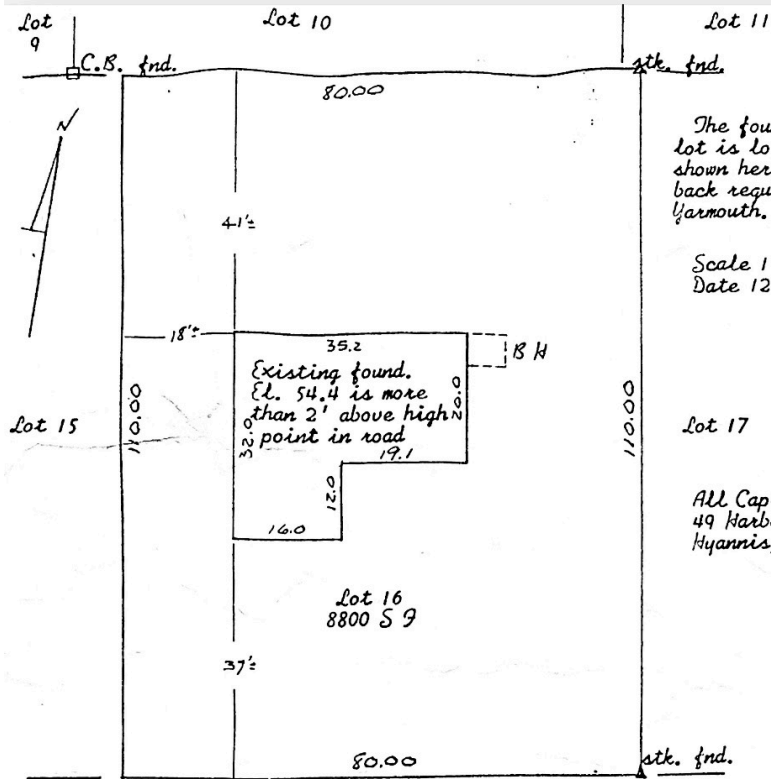 Lot
9
Lot 10
Lot 11
C.B. fnd.
stk. fnd.
80.00
N
The
lot is
shown
back
Yarmouth.
41'±
Scale 1
Date 12
18'±
35.2
B H
Existing found.
El. 54.4 is more
than 2' above high
point in road
20.0
32.0
19.1
12.0
16.0
Lot 15
110.00
110.00
Lot 17
All Cap
49 Harb
Hyannis,
Lot 16
8800 S F
37'±
80.00
stk. fnd.